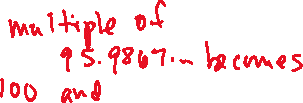 multiple of
95.9867... becomes
100 and